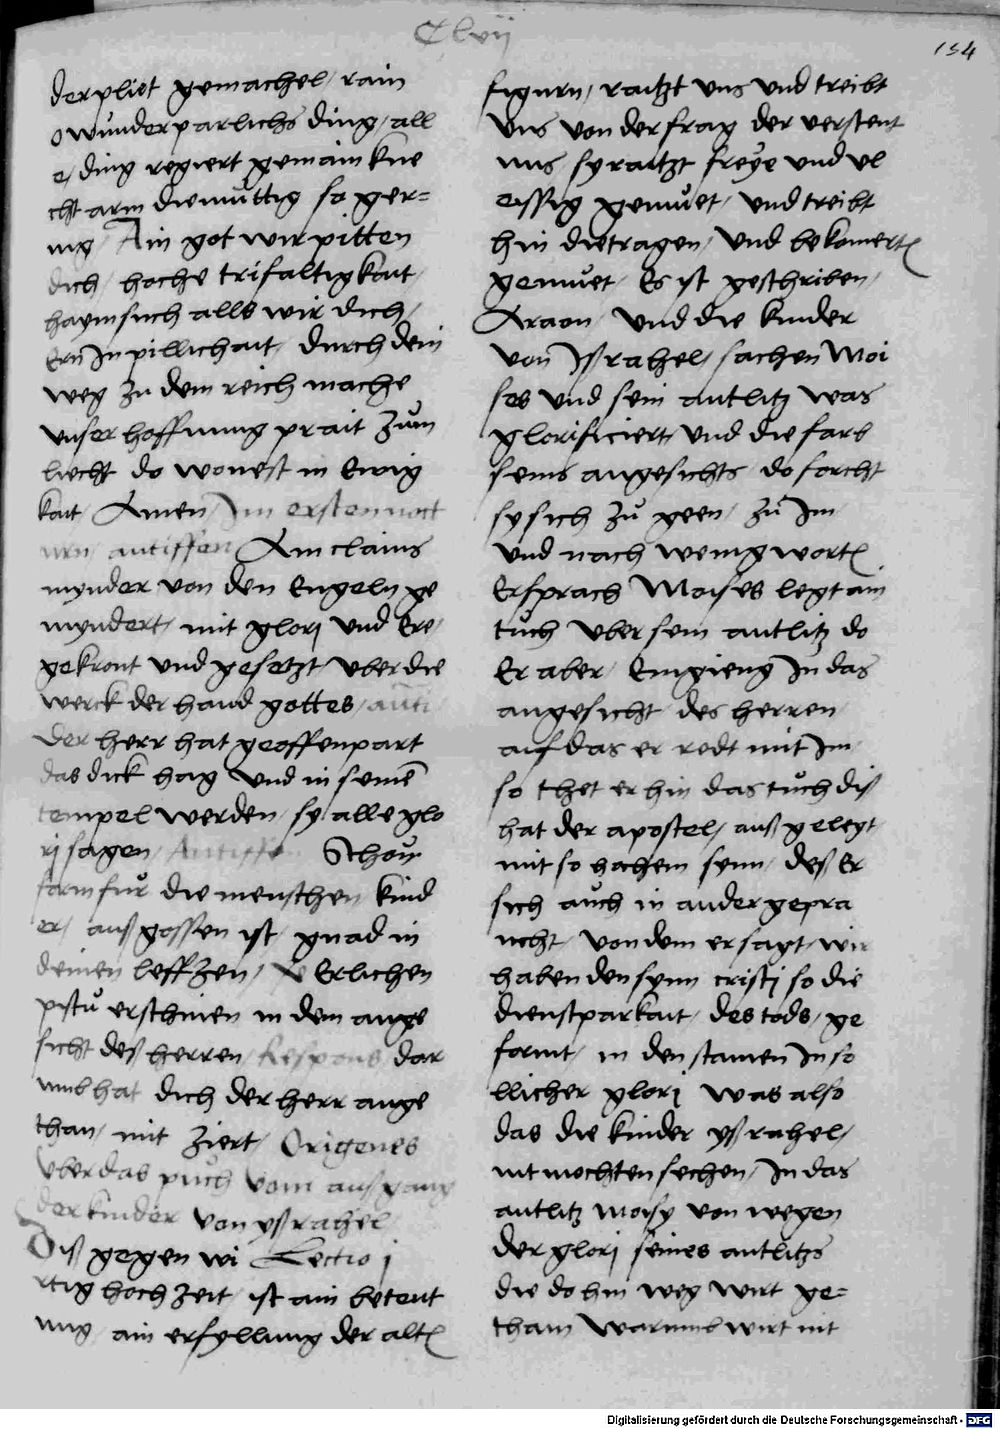 Clvij
154
der pliet gemachel / rain
o wunderparlichs ding / all
e / ding regiert gemain kne
cht arm diemuttig so ger=
nig / Ain got wir pitten
dich / hoche trifaltigkait /
haymsuch alls wir dich /
Ern In pillichait / durch dein
weg zu dem reich mache
unser hoffnung prait zum
liecht do wonest in Ewig
kait / Amen / Im ersten noct
urn / antiffen Am clains
mynder von den Engeln ge
myndert / mit glorj und Ere /
gekront und gesetzt uber die
werck der hand gottes / anti
Der herr hat geoffenpart
das dick hag und in seinē
tempel werden / sy alle glo
rj sagen / Antiffen Schon
form fur die menschen kind
er / auß gossen ist / gnad in
deinen leffzen / Erlichen
pistu erschinen in dem ange
sicht deß herren / Respons dar
umb hat dich der herr ange
than / mit ziert / Origenes
uber das puch vom außgang
der kinder von ysrahel /
Diß gegen wi Lectio j
rtig hochzeit / ist ain beteut
ung / ain erfyllung der altē
figurn / raitzt uns und treibt
uns von der frag der verstent
nus sy raitzt freye und vl
eissig gemuet / und treibt
hin die tragen / und bekomertē
gemuet / Es ist geschriben /
Araon / und die kinder
von Israhel / sachen Moi
ses und sein antlitz was
glorificiert / und die farb
seins angesichts / do forcht
sy sich zu geen / zu Im /
und nach wenig wortē
Er sprach Moises legt ain
tuch uber sein antlitz do
Er aber / Eingieng In das
angesicht / des herren /
auf das er redt mit Im /
so thet er hin das tuch diß
hat der apostel / auß gelegt /
mit so hochem synn / deß Er
sich auch in ander gepra
ucht / von dem er sagt / wir
haben den synn cristj so die
dienstparkait / des tods / ge
formt / in den stainen In so
llicher glorj was also
das die kinder ysrahel /
nit mochten sechen / In das
antlitz moisy von wegen
der glorj seines antlitzs
die do hin weg wirt ge=
thain warumb wirt nit
Digitalisierung gefördert durch die Deutsche Forschungsgemeinschaft - DFG